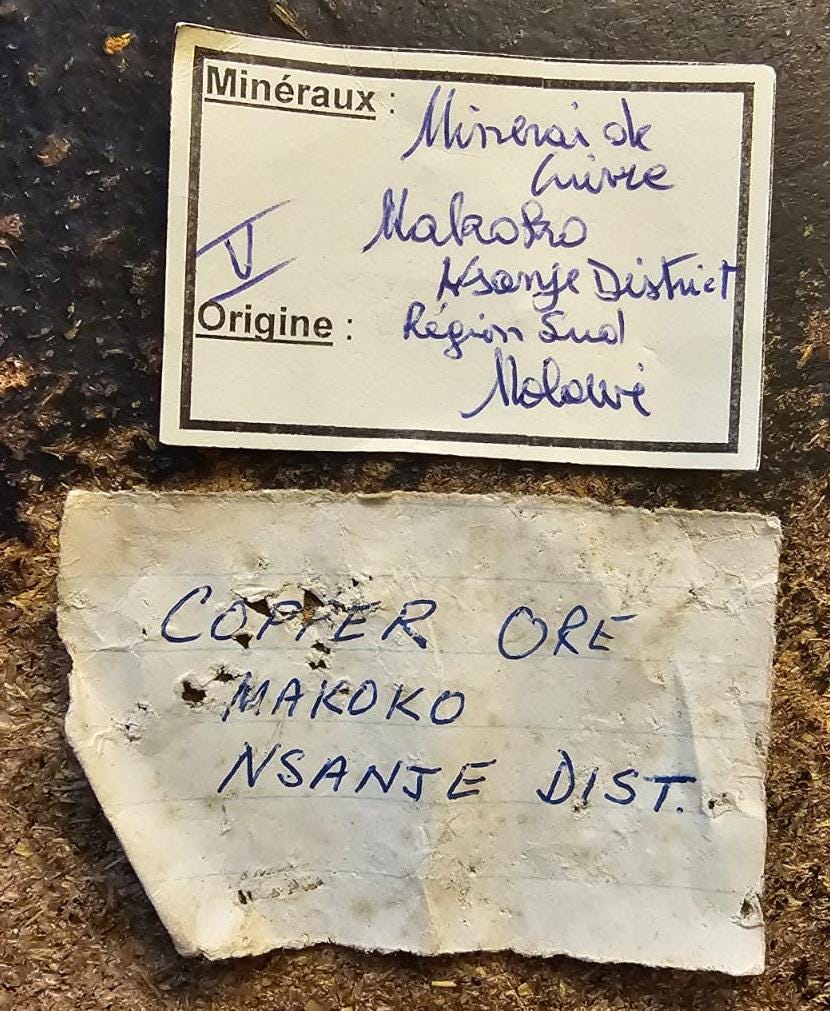 Minéraux : Minerai de
Cuivre
Makoko
Nsanje District
Origine : Région Sud
Malawi
COPPER ORE
MAKOKO
NSANJE DIST.